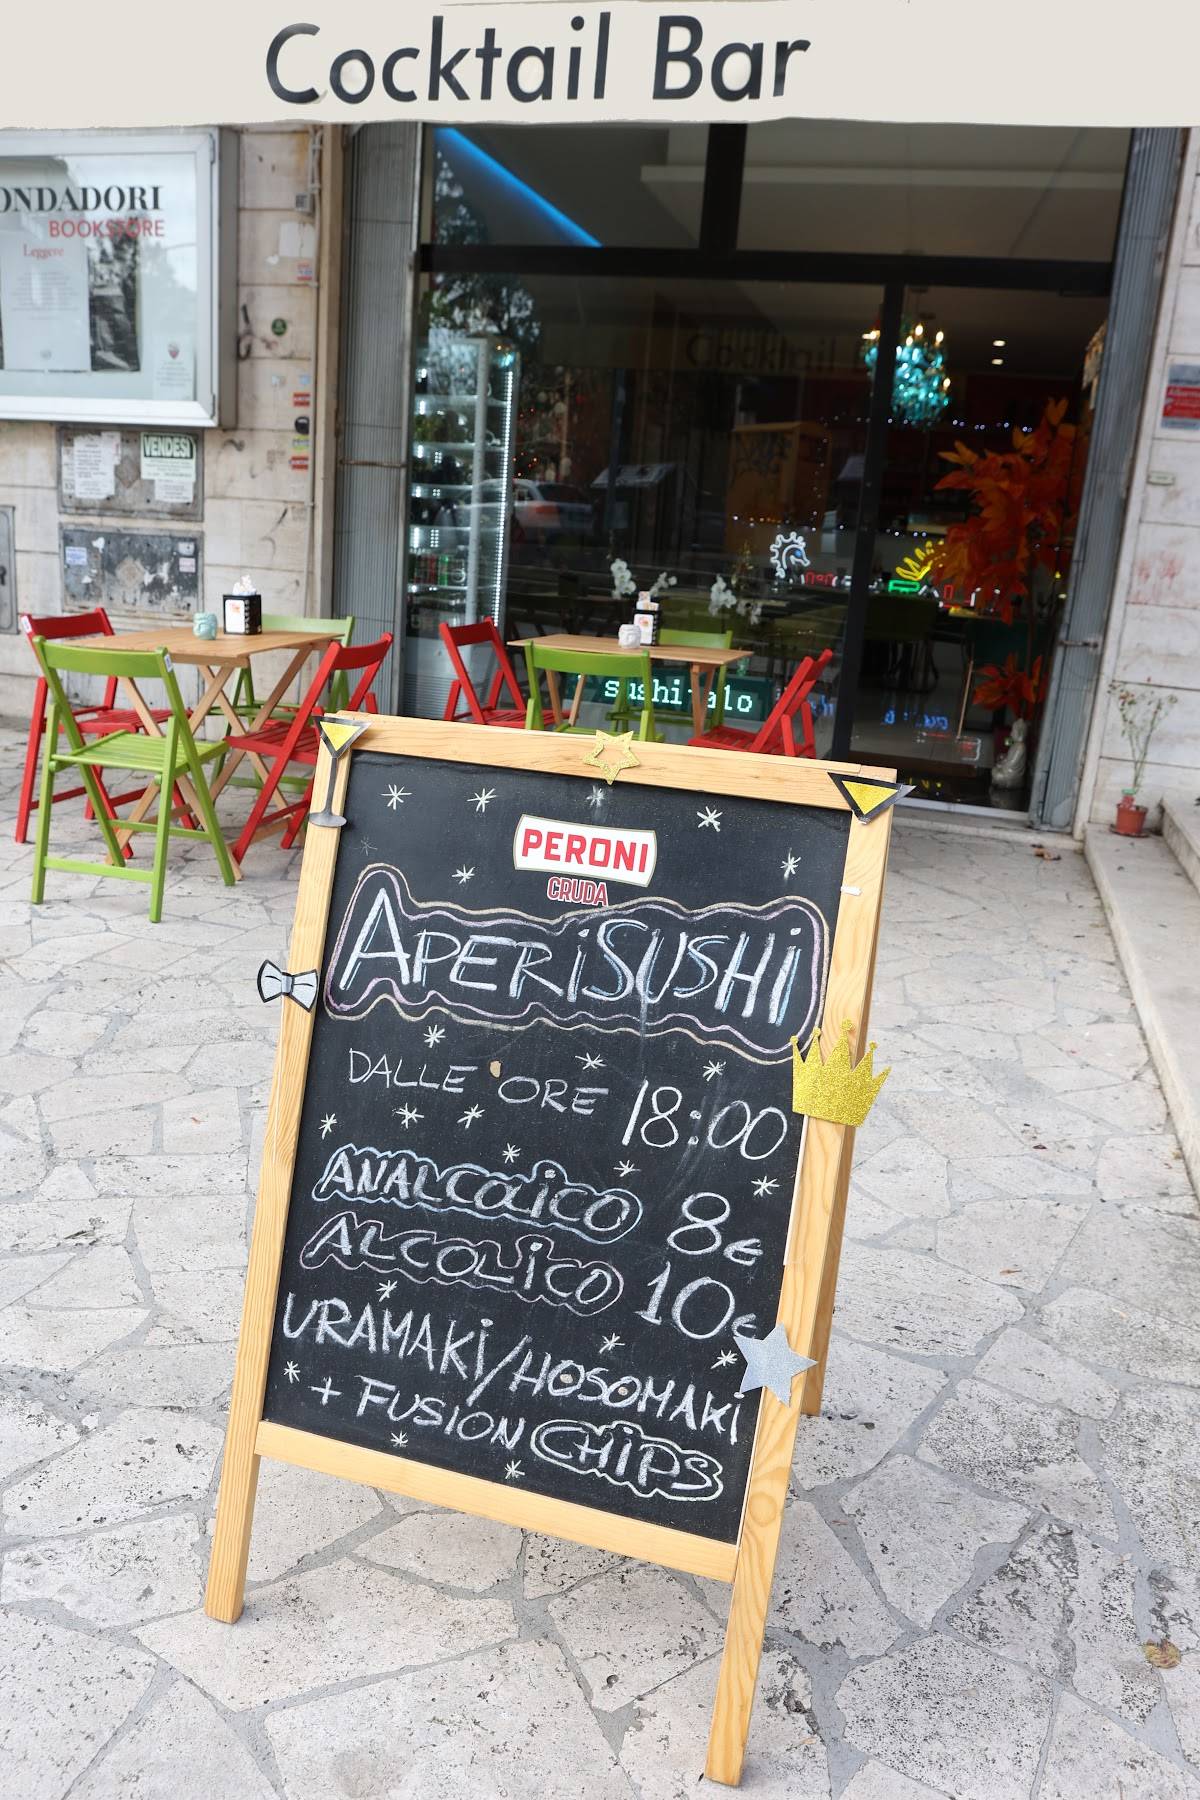 Cocktail Bar
ONDADORI
BOOKSTORE
Leggere
VENDESI
Cocktail
PERONI
CRUDA
APERiSUSHi
DALLE ORE 18:00
ANALCOLiCO 8€
ALCOLiCO 10€
URAMAKi/HOSOMAKi
+ FUSiON CHiPS